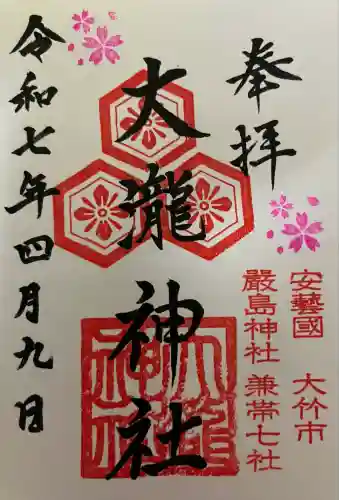 奉拝
安藝國 大竹市
嚴島神社 兼帯七社
大瀧神社
令和七年四月九日